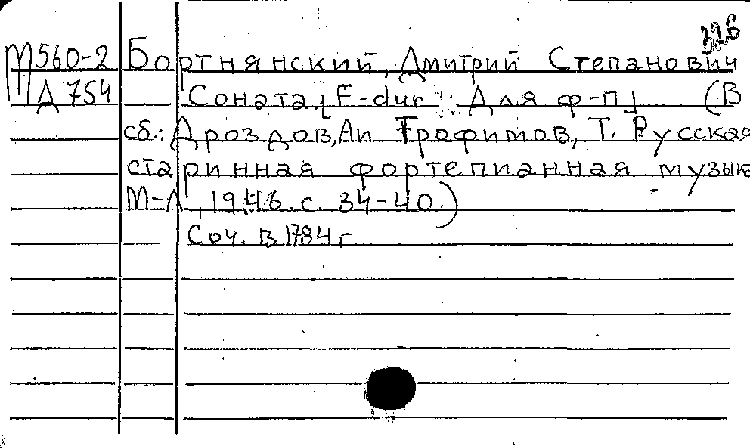 М560-2 Бортнянский, Дмитрий Степанович
Д 754 Соната [F-dur. Для ф-п] (В
сб.: Дроздов, Ап Трофимов, Т. Русская
старинная фортепианная музык
М-Л, 1946. с. 34-40)
Соч. в 1784 г